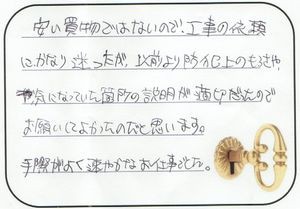 安い買物ではないので、工事の依頼
にかなり迷ったが、以前より防犯上のもろさや、
気になっていた箇所の説明が適切だったので
お願いしてよかったのだと思います。
手際がよく速やかなお仕事でした。